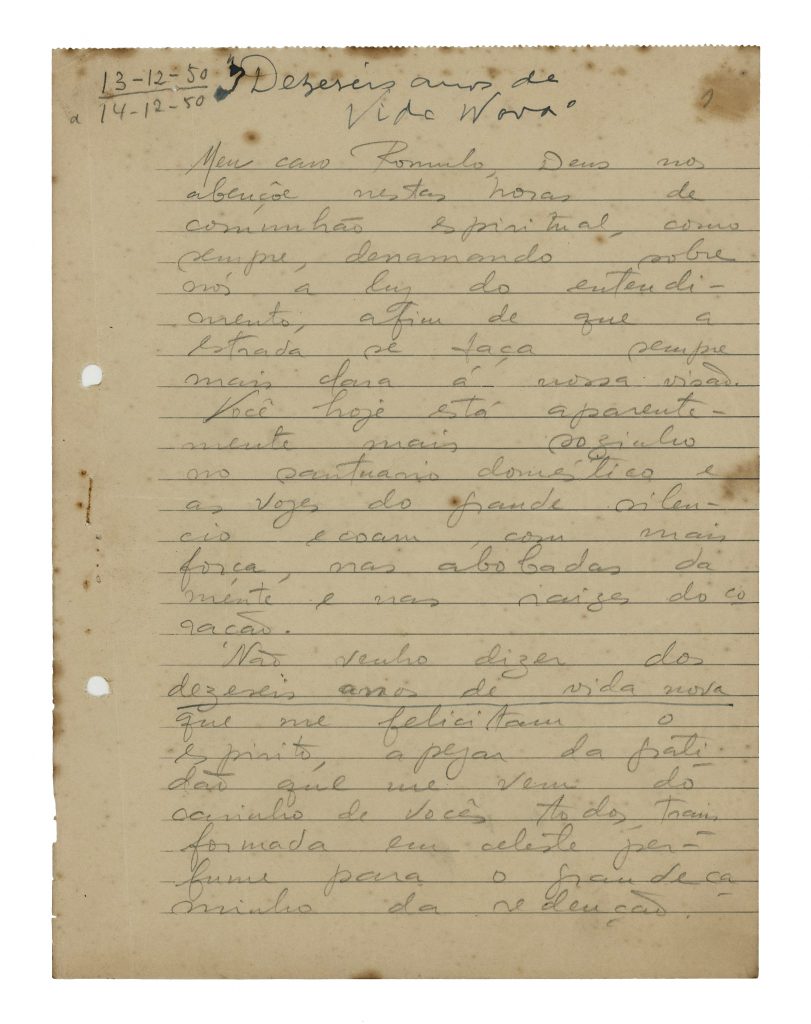 13-12-50 "Dezeseis anos de
a 14-12-50 Vida Nova"
Meu caro Romulo, Deus nos
abençõe nestas horas de
comunhão espiritual, como
sempre, derramando sobre
nós a luz do entendi-
mento, afim de que a
estrada se faça sempre
mais clara á nossa visão.
Você hoje está aparente-
mente mais sozinho
no santuario doméstico e
as vozes do grande silen-
cio ecoam, com mais
força, nas abobadas da
mente e nas raizes do co
ração.
Não venho dizer dos
dezeseis anos de vida nova
que me felicitam o
espirito, apezar da grati-
dão que me vem do
carinho de vocês todos, trans
formada em celeste per-
fume para o grande ca
minho da redenção.